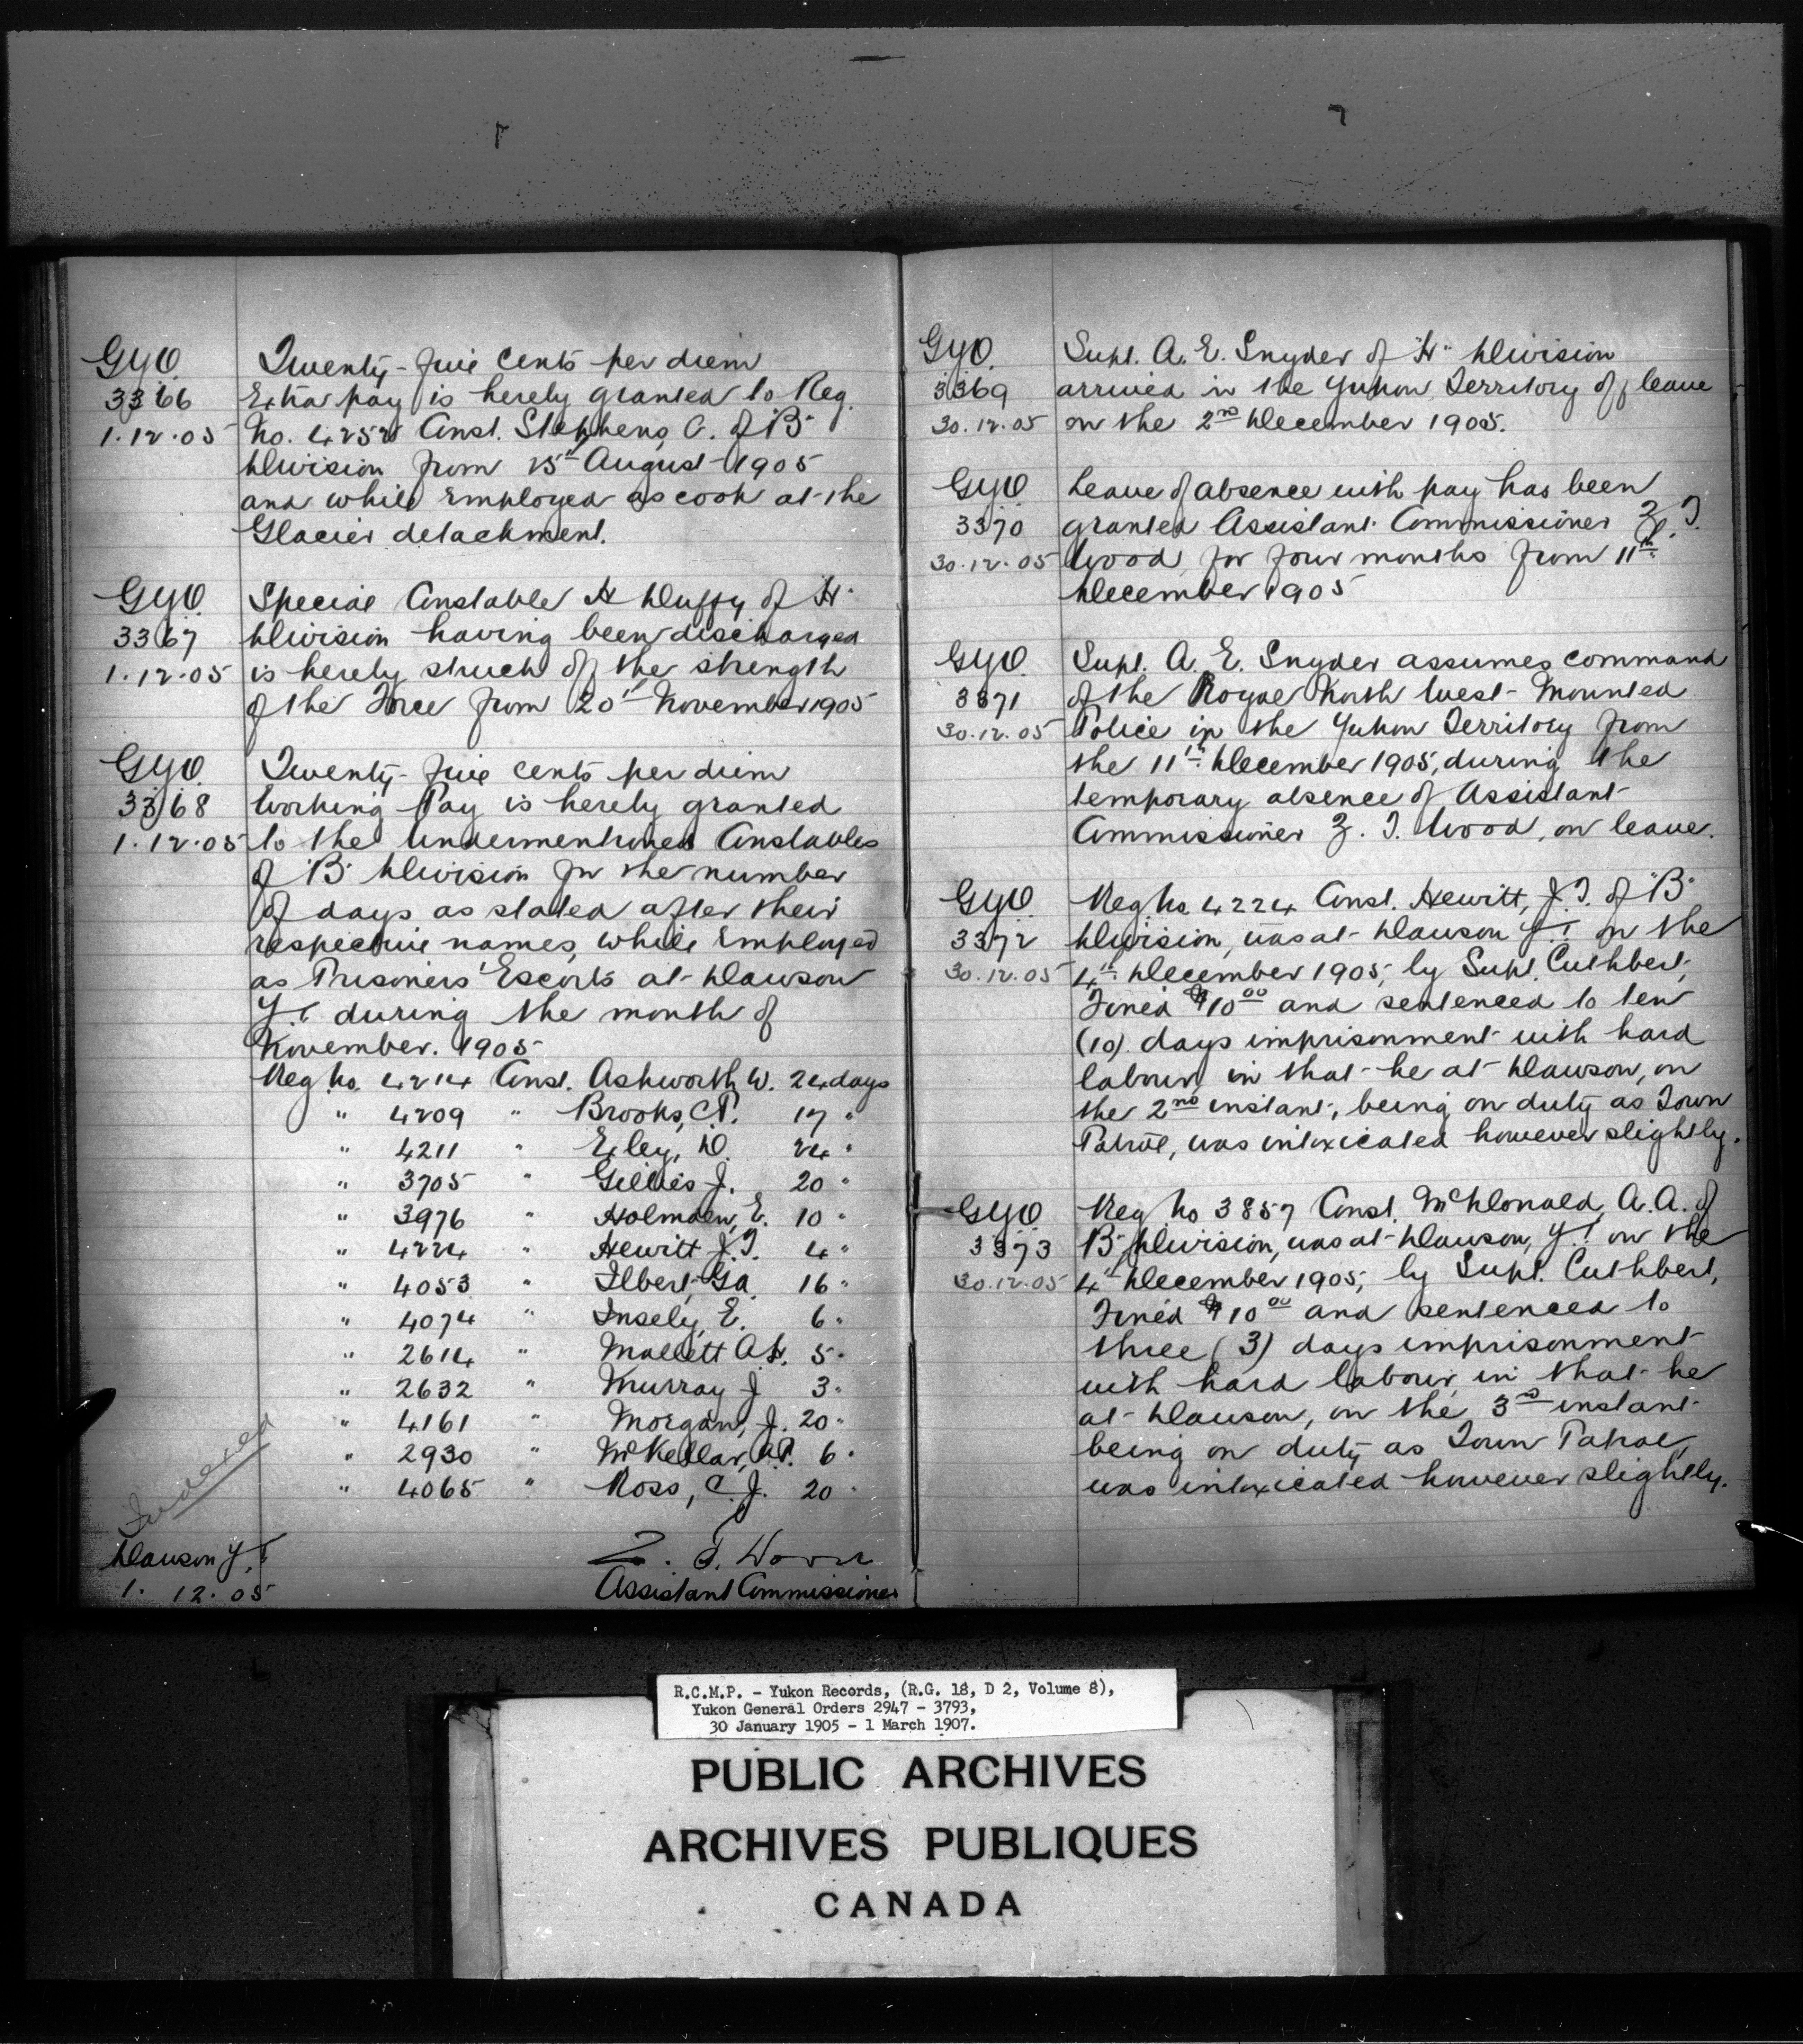 GYO. Twenty-five cents per diem
3366 Extra pay is hereby granted to Reg.
1.12.05 No. 4252 Const. Stephens, C. of "B"
Division from 25th August 1905
and while employed as cook at the
Glacier detachment.
GYO. Special Constable H Duffy of "H"
3367 Division having been discharged
1.12.05 is hereby struck off the strength
of the Force from 20th November 1905
GYO. Twenty-five cents per diem
3368 Working Pay is hereby granted
1.12.05 to the undermentioned Constables
of "B" Division for the number
of days as stated after their
respective names, while employed
as Prisoners' Escorts at Dawson
Y.T. during the month of
November. 1905
Reg No. 4214 Const. Ashworth, W. 24 days
" 4209 " Brooks, C.P. 17 "
" 4211 " Exley, D. 24 "
" 3705 " Gillies J. 20 "
" 3976 " Holmden, E. 10 "
" 4224 " Hewitt J.T. 4 "
" 4053 " Ilbert, Ga. 16 "
" 4074 " Insely, E. 6 "
" 2614 " Mallett 5 "
" 2632 " Murray J 3 "
" 4161 " Morgan, J. 20 "
" 2930 " McKellar, A.P. 6 "
" 4065 " Ross, C.J. 20 "
Indexed
Dawson Y.T. Z. T. Wood
1. 12. 05 Assistant Commissioner
GYO. Supt. A. E. Snyder of "H" Division
3369 arrived in the Yukon Territory off leave
30.12.05 on the 2nd December 1905.
GYO. Leave of absence with pay has been
3370 granted Assistant Commissioner Z. T.
30.12.05 Wood, for four months from 11th
December 1905
GYO. Supt. A. E. Snyder assumes command
3371 of the Royal North West Mounted
30.12.05 Police in the Yukon Territory from
the 11th December 1905, during the
temporary absence of Assistant
Commissioner Z. T. Wood, on leave.
GYO. Reg. No. 4224 Const. Hewitt, J.T. of "B"
3372 Division, was at Dawson Y.T. on the
30.12.05 4th December 1905, by Supt. Cuthbert,
Fined $10 00 and sentenced to ten
(10) days imprisonment with hard
labour, in that he at Dawson, on
the 2nd instant, being on duty as Town
Patrol, was intoxicated however slightly.
GYO. Reg No 3857 Const. McDonald, A.A. of
3373 "B" Division, was at Dawson, Y.T. on the
30.12.05 4th December 1905, by Supt. Cuthbert,
Fined $10 00 and sentenced to
three (3) days imprisonment
with hard labour, in that he
at Dawson, on the 3rd instant
being on duty as Town Patrol,
was intoxicated however slightly.
R.C.M.P. - Yukon Records, (R.G. 18, D 2, Volume 8),
Yukon General Orders 2947 - 3793,
30 January 1905 - 1 March 1907.
PUBLIC ARCHIVES
ARCHIVES PUBLIQUES
CANADA